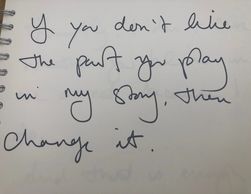 If you don't like
the part you play
in my story, then
change it.